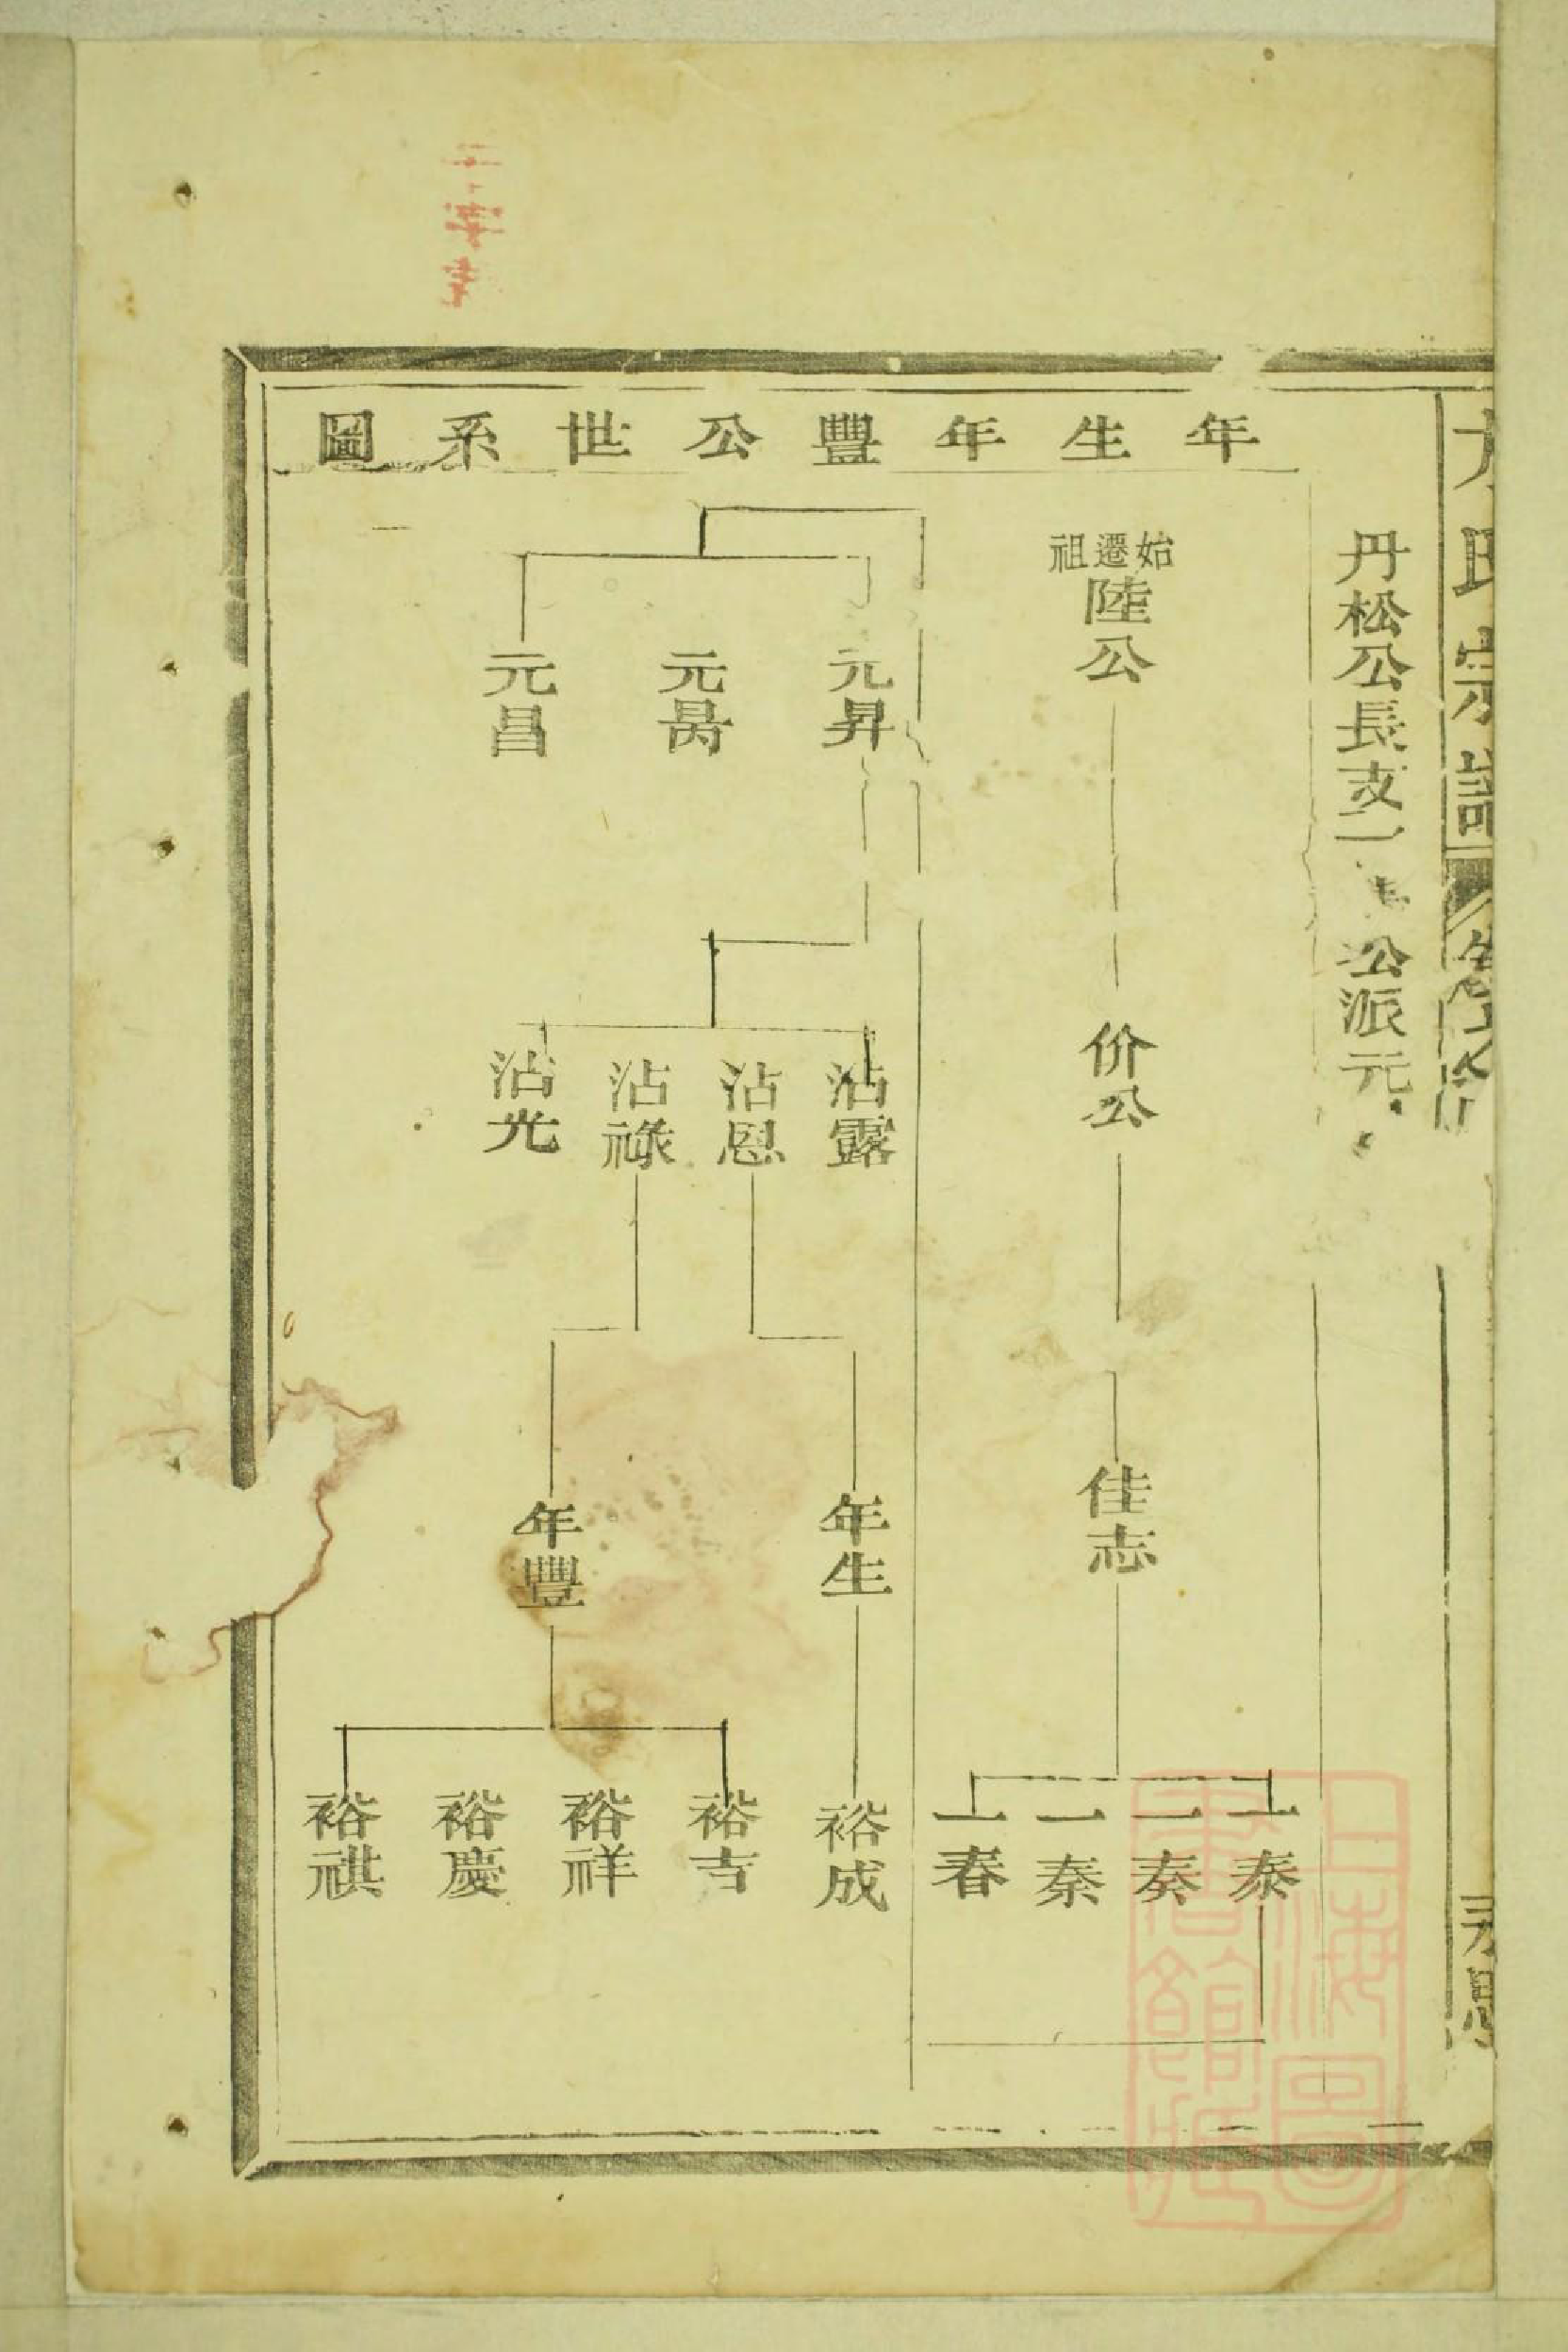 氏宗譜
丹松公長支
公派元
年生年豐公世系圖
始遷祖
陸公
价公
佳志
一泰
一奏
一秦
一春
元昇
元昌
沾露
沾恩
沾祿
沾光
年生
年豐
裕成
裕吉
裕祥
裕慶
裕祺
上海圖書館藏